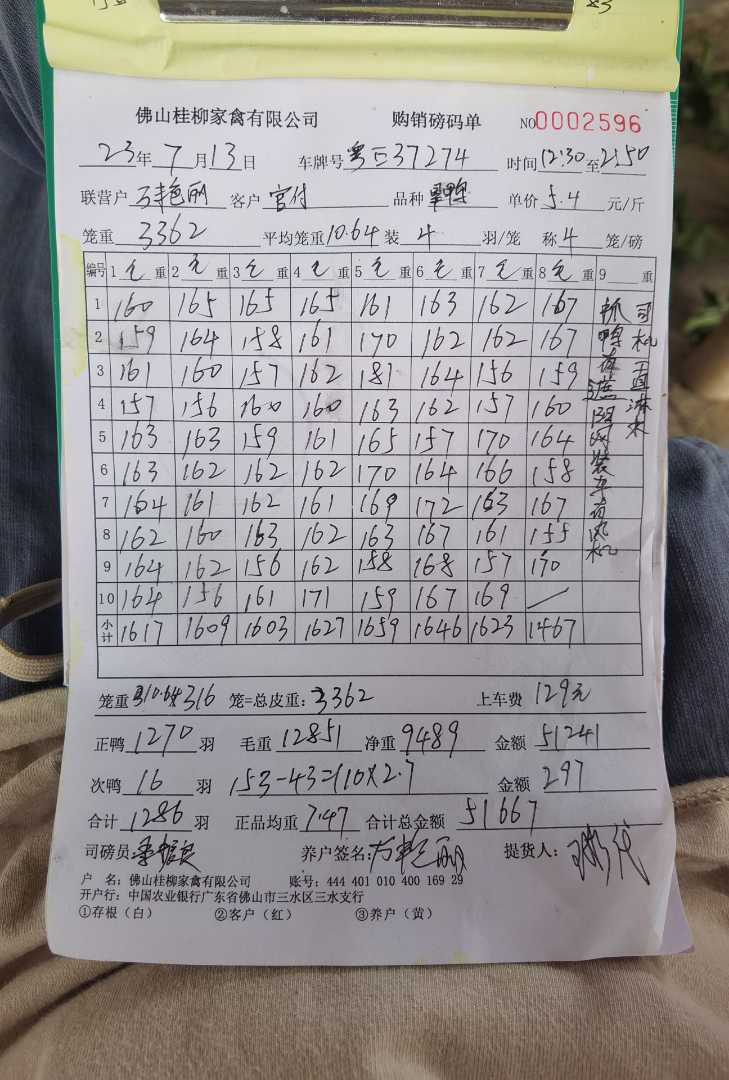 佛山桂柳家禽有限公司 购销磅码单 NO0002596
23年7月13日 车牌号 粤E37274 时间12:30至2:50
联营户 万艳丽 客户 官付 品种 单价 5.4 元/斤
笼重 3362 平均笼重10.64装 4 羽/笼 称 4 笼/磅
编号 1 毛 重 2 毛 重 3 毛 重 4 毛 重 5 毛 重 6 毛 重 7 毛 重 8 毛 重 9 重
1 160 165 165 165 161 163 162 167
2 159 164 158 161 170 162 162 167
3 161 160 157 162 181 164 156 159
4 157 156 160 160 163 162 157 160
5 163 163 159 161 165 157 170 164
6 163 162 162 162 170 164 166 158
7 164 161 162 161 169 172 163 167
8 162 160 163 162 163 167 161 155
9 164 162 156 162 158 168 157 170
10 164 156 161 171 159 167 169 /
小计 1617 1609 1603 1627 1659 1646 1623 1467
司机一直淋水
抓鸭有遮阴网装车有风机
笼重 10.64×316 笼=总皮重: 3362 上车费 129元
正鸭 1270 羽 毛重 12851 净重 9489 金额 51241
次鸭 16 羽 153-43=110×2.7 金额 297
合计 1286 羽 正品均重 7.47 合计总金额 51667
司磅员 养户签名: 万艳丽 提货人:
户 名: 佛山桂柳家禽有限公司 账号: 444 401 010 400 169 29
开户行: 中国农业银行广东省佛山市三水区三水支行
①存根（白） ②客户（红） ③养户（黄）